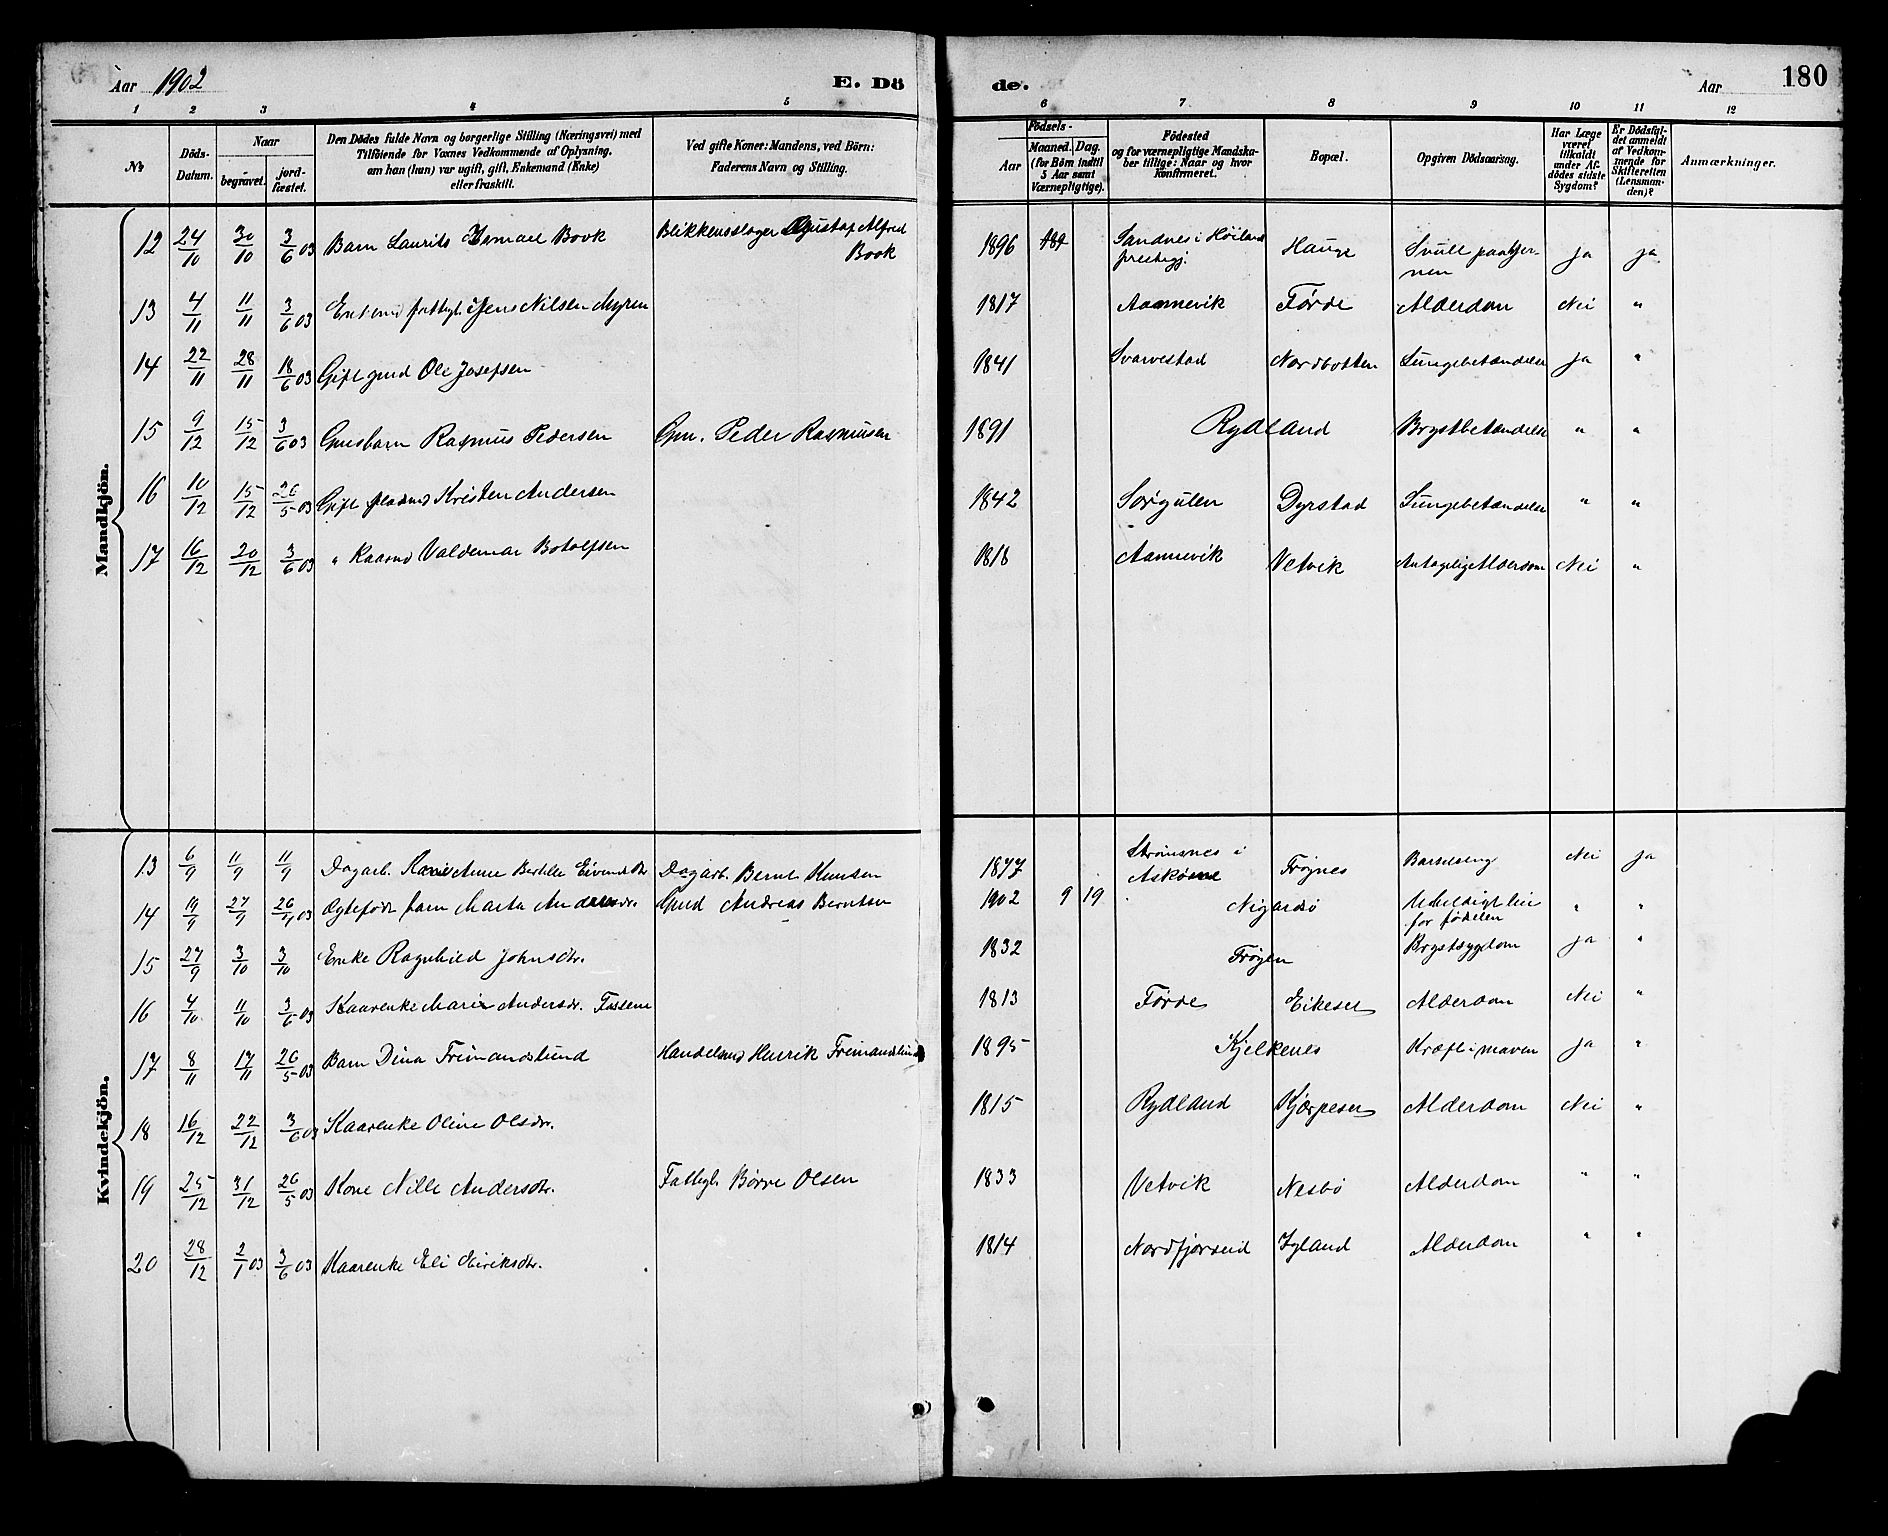 Aar 1902
E. Dö
de.
Aar
180
1 2 3 4 5 6 7 8 9 10 11 12
№
Döds-Datum.
Naar
begravet.
jord-fæstet.
Den Dödes fulde Navn og borgerlige Stilling (Næringsvei) med
Tilföiende for Voxnes Vedkommende af Oplysning,
om han (hun) var ugift, gift, Enkemand (Enke)
eller fraskilt.
Ved gifte Koner: Mandens, ved Börn:
Faderens Navn og Stilling.
Födsels-
Aar
Maaned. Dag.
(for Börn indtil
5 Aar samt
Værnepligtige).
Födested
og for værnepligtige Mandska-
ber tillige: Naar og hvor
Konfirmeret.
Bopæl.
Opgiven Dödsaarsag.
Har Læge
været
tilkaldt
under Af-
dödes sidste
Sygdom?
Er Dödsfal-
det anmeldt
af Vedkom-
mende for
Skifteretten
(Lensman-
den)?
Anmærkninger.
Mandkjön.
12 24/10 30/10 3/6 03 Barn Laurits Book Blikkenslager Gustaf Alfred Book 1896 Sandnes i Høiland prestegj. Hauge Svull paa hjernen ja ja
13 4/11 11/11 3/6 03 Jens Nilsen Myren 1817 Aannevik Førde Alderdom Nei "
14 22/11 28/11 18/6 03 Gift gmd Ole Josefsen 1841 Svarvestad Nordbotten Lungebetændelse ja "
15 9/12 15/12 3/6 03 Gmsbarn Rasmus Pedersen Gm. Peder Rasmussen 1891 Rydland Brystbetændelse " "
16 10/12 15/12 26/5 03 Gift pladsmd Kristen Andersen 1842 Sørgulen Dyrstad Lungebetændelse " "
17 16/12 20/12 3/6 03 " Kaarmd Valdemar Botolfsen 1818 Aannevik Vetvik Antagelig Alderdom Nei "
Kvindekjön.
13 6/9 11/9 11/9 Dagarb. Anne Bertille Eivindsdtr Dagarb. Bernt Knutsen 1877 Strømsnes i Askøvne Frøynes Barselseng Nei ja
14 19/9 27/9 26/9 03 Ægtefødt barn Marta Andreasdr. Gmd Andreas Berntsen 1902 9 19 Nigardsø Uheldigt leie før fødselen " "
15 27/9 3/10 3/10 Enke Ragnhild Johnsdtr. 1832 Frøyen Brystsygdom ja "
16 4/10 11/10 3/6 03 Kaarenke Marie Andersdr. 1813 Førde Eikeset Alderdom Nei "
17 8/11 17/11 26/5 03 Barn Dina Frimandslund Handelsmd Henrik Frimandslund 1895 Kjelkenes Kræft i maven ja "
18 16/12 22/12 3/6 03 Kaarenke Oline Olsdr. 1815 Rydland Alderdom Nei "
19 25/12 31/12 26/5 03 Kone Nille Andersdtr. Fattigl. Børre Olsen 1833 Vetvik Nesbø Alderdom " "
20 28/12 2/1 03 3/6 03 Kaarenke Eli Eiriksdtr. 1814 Nordfjoreid Igland Alderdom " "